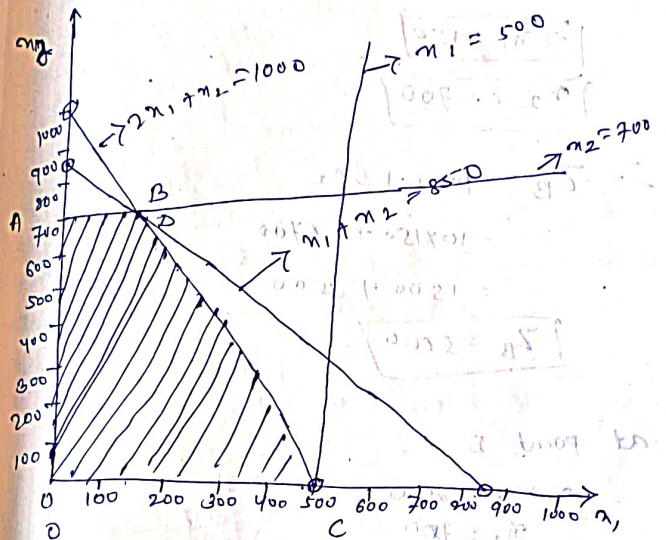 x₂
2x₁ + x₂ = 1000
x₁ = 500
x₂ = 700
x₁ + x₂ = 850
1000
900
800
A
B
D
700
600
500
400
300
200
100
0 100 200 300 400 500 600 700 800 900 1000 x₁
O C